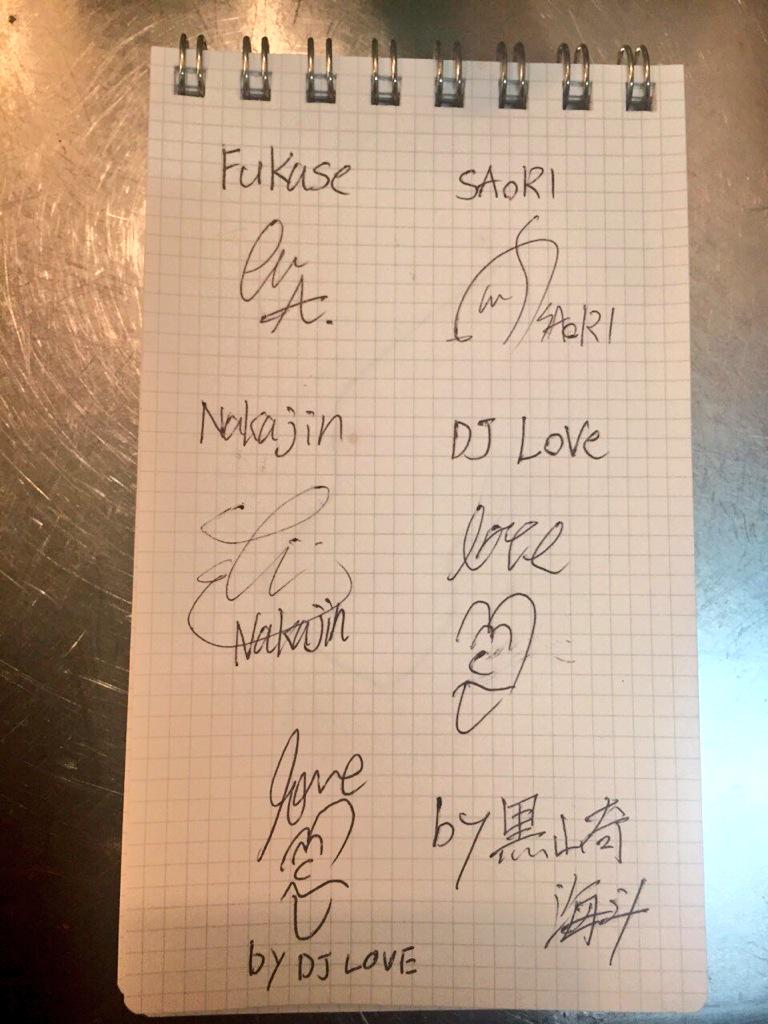 Fukase
SAORI
A.
SAORI
Nakajin
DJ Love
love
Nakajin
love
by 黒山奇
海斗
by DJ LOVE